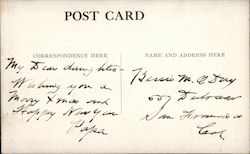 POST CARD
CORRESPONDENCE HERE
NAME AND ADDRESS HERE
My Dear daughter -
Wishing you a
Merry Xmas and
Happy New Year
Papa
Bessie M. Day
San Francisco
Cal